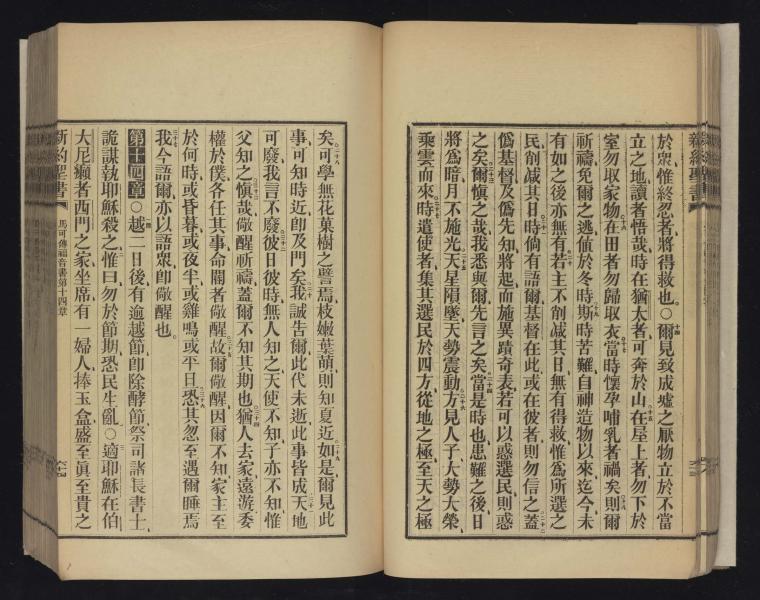 於衆惟終忍者將得救也。○爾見致成墟之厭物立於不當
立之地讀者悟哉時在猶太者可奔於山在屋上者勿下於
室勿取家物在田者勿歸取衣當時懷孕哺乳者禍矣則爾
祈禱免爾之逃値於冬時斯時苦難自神造物以來迄今未
有如之後亦無有若主不削減其日無有得救惟爲所選之
民削減其日時倘有語爾基督在此或在彼者則勿信之蓋
僞基督及僞先知將起而施異蹟奇表若可以惑選民則惑
之矣爾愼之哉我悉與爾先言之矣當是時也患難之後日
將爲暗月不施光天星隕墜天勢震動方見人子大勢大榮
乘雲而來時遣使者集其選民於四方從地之極至天之極
矣可學無花菓樹之譬焉枝嫩葉萌則知夏近如是爾見此
事可知時近卽及門矣我誠告爾此代未逝此事皆成天地
可廢我言不廢彼日彼時無人知之天使不知子亦不知惟
父知之愼哉儆醒祈禱蓋爾不知其期也猶人去家遠游委
權於僕各任其事命閽者儆醒故爾儆醒因爾不知家主至
於何時或昏暮或夜半或雞鳴或平旦恐其忽至遇爾睡焉
我今語爾亦以語衆卽儆醒也。
第十四章○越二日後有逾越節卽除酵節祭司諸長書士
詭謀執耶穌殺之惟曰勿於節期恐民生亂○適耶穌在伯
大尼癩者西門之家坐席有一婦人捧玉盒盛至眞至貴之
新約聖書 馬可傳福音書第十四章